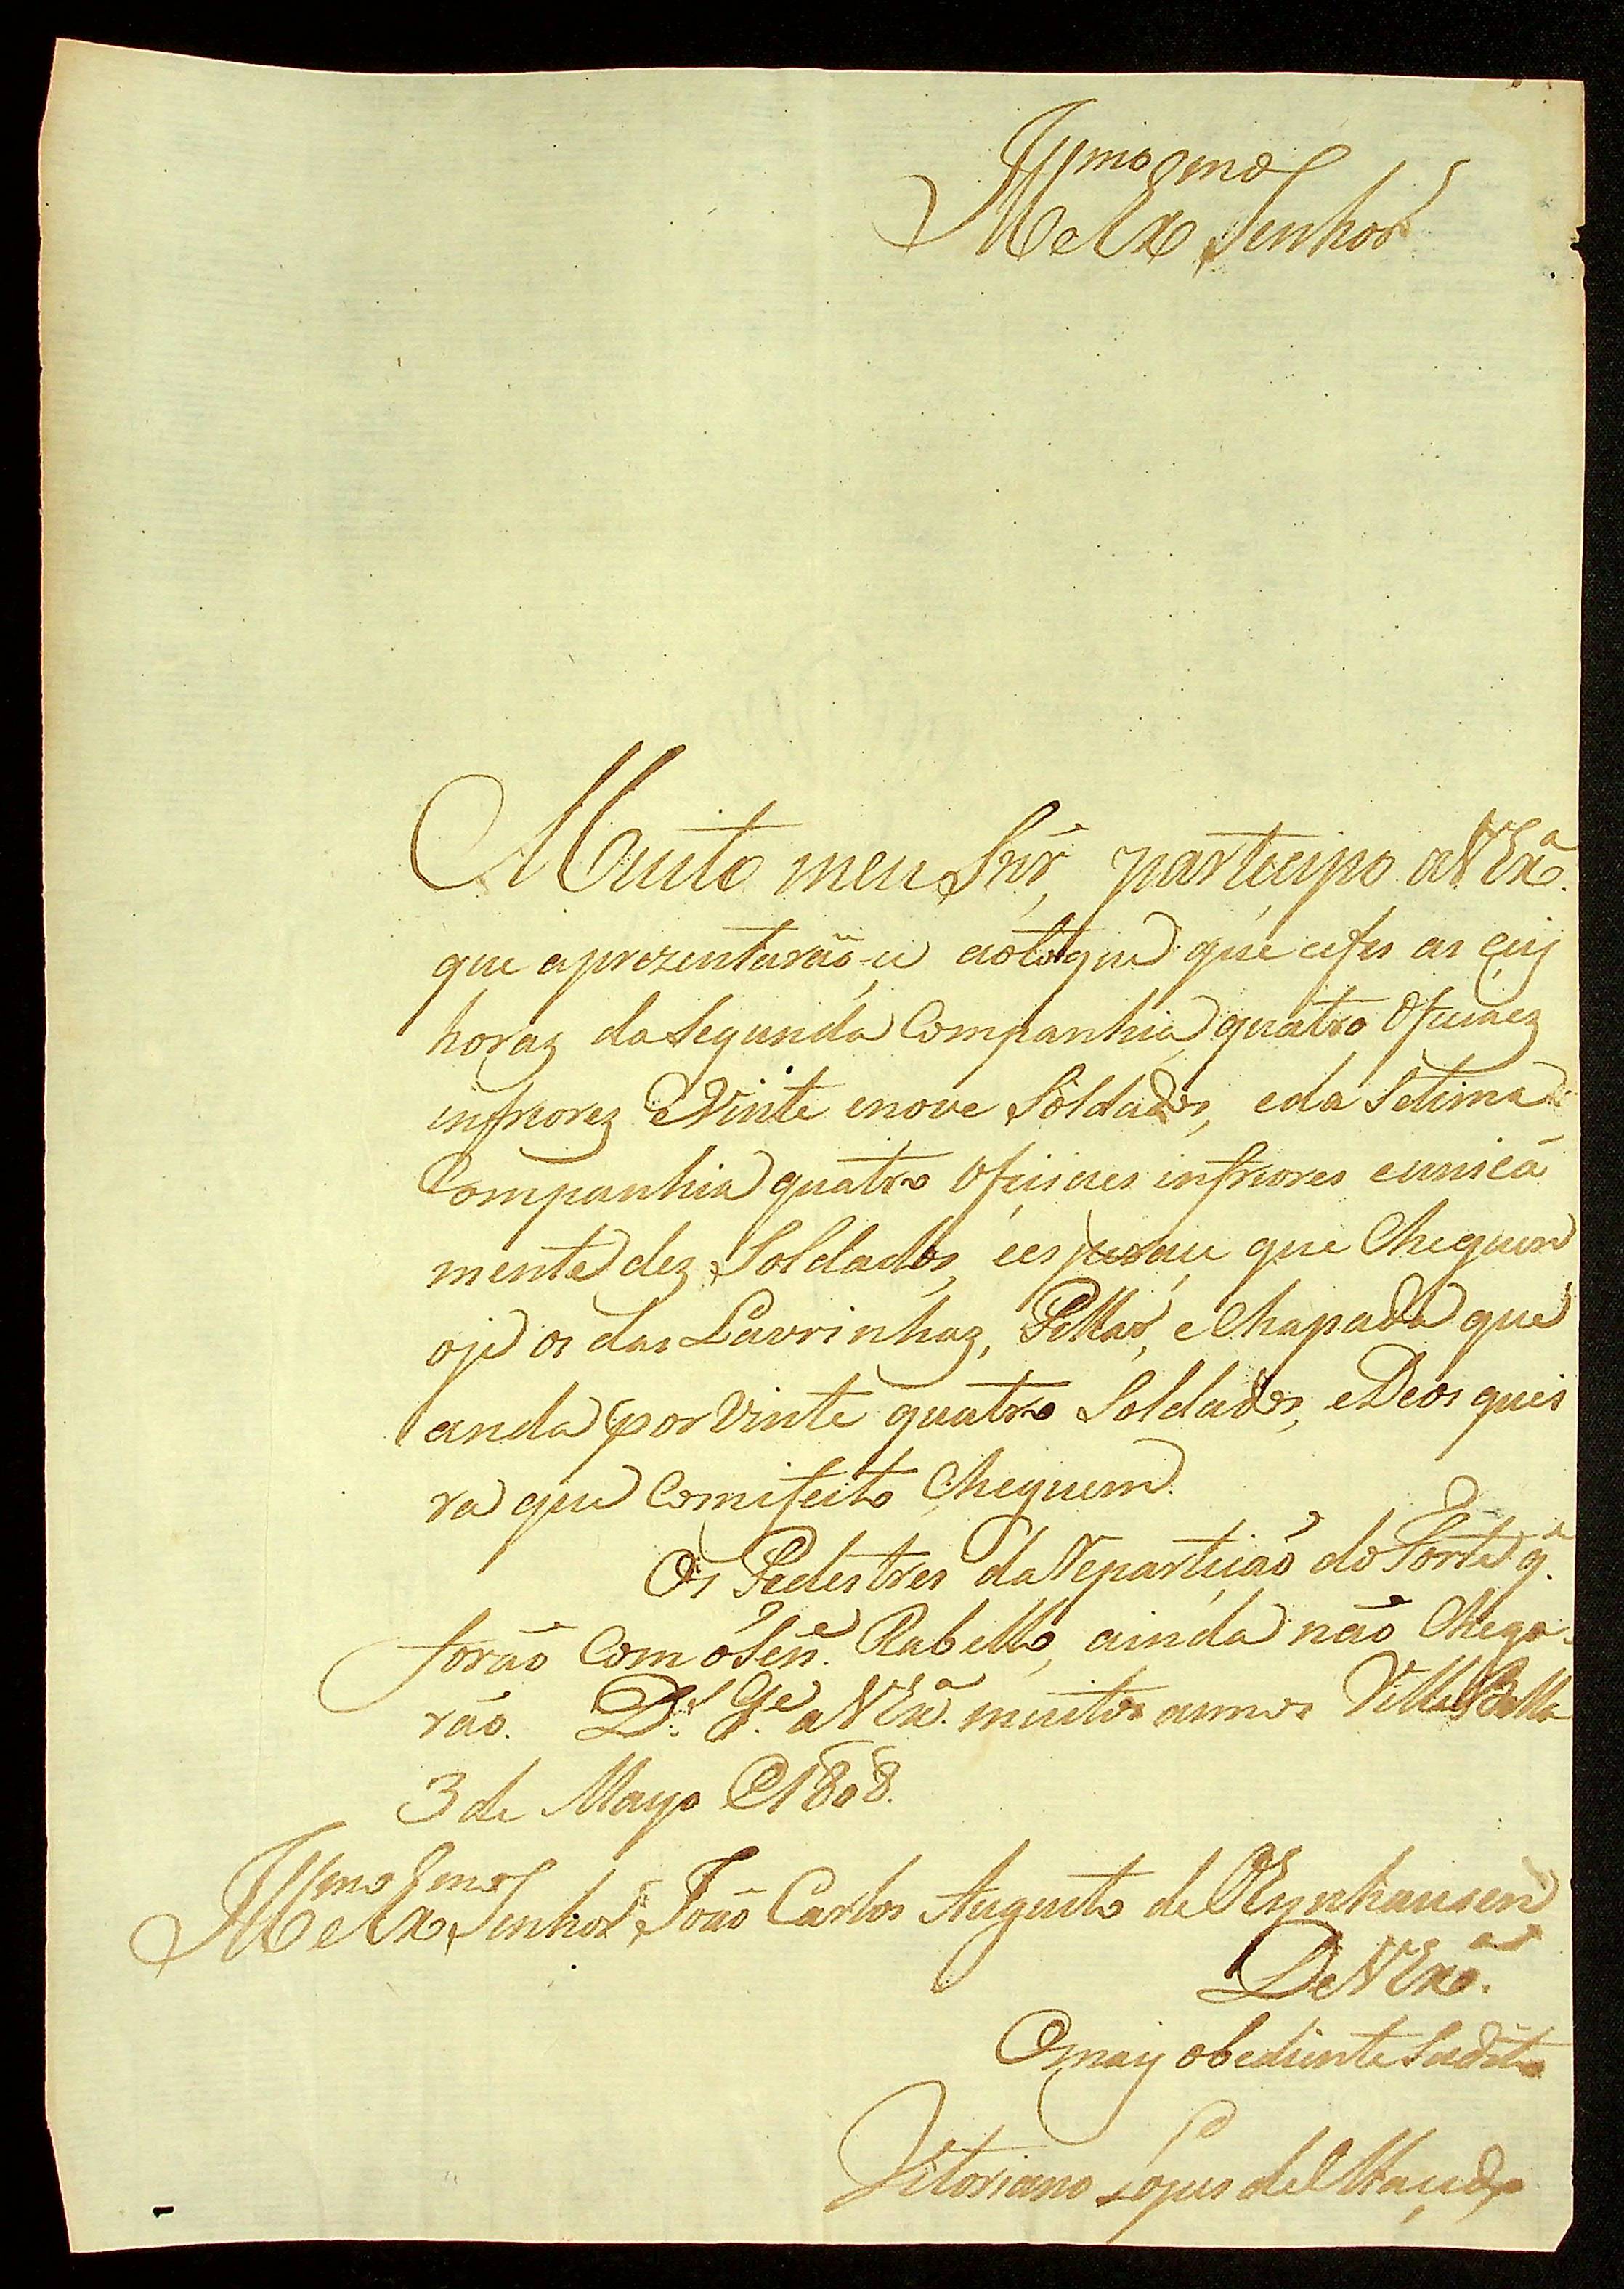 Illmo e Exmo Senhor
Muito meu Snr, partecipo a V Exa.
que aprezentarão-ce aotoque que cefes as
horaz da Segunda Companhia quatro Oficiaez
infriorez e Vinte enove Soldados, eda Setima
Companhia quatro Oficiaes infriores eunica
mente dez Soldados, eesperace que Cheguem
oje os das Lavrinhaz, Pillar, e Chapada que
anda por Vinte quatro Soldados, eDeos quei
ra que Comifeito Cheguem.
Os Pedestres da Repartição do Forte q.
forão Com o Rabello, ainda não Chega-
rão. Ds. Ge. a V Exa. muitos annos Villa Bella
3 de Mayo de 1808.
Illmo e Exmo Senhor João Carlos Augusto de OEynhausen
De V Exa.
O mais obediente Sudito
Vitoriano Lopes de Macedo